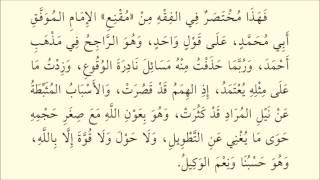 فَهَذَا مُخْتَصَرٌ فِي الْفِقْهِ مِنْ «مُقْنِعِ» الْإِمَامِ الْمُوَفَّقِ
أَبِي مُحَمَّدٍ، عَلَى قَوْلٍ وَاحِدٍ، وَهُوَ الرَّاجِحُ فِي مَذْهَبِ
أَحْمَدَ، وَرُبَّمَا حَذَفْتُ مِنْهُ مَسَائِلَ نَادِرَةَ الْوُقُوعِ، وَزِدْتُ مَا
عَلَى مِثْلِهِ يُعْتَمَدُ، إِذِ الْهِمَمُ قَدْ قَصُرَتْ، وَالْأَسْبَابُ الْمُثَبِّطَةُ
عَنْ نَيْلِ الْمُرَادِ قَدْ كَثُرَتْ، وَهُوَ بِعَوْنِ اللَّهِ مَعَ صِغَرِ حَجْمِهِ
حَوَى مَا يُغْنِي عَنِ التَّطْوِيلِ، وَلَا حَوْلَ وَلَا قُوَّةَ إِلَّا بِاللَّهِ،
وَهُوَ حَسْبُنَا وَنِعْمَ الْوَكِيلُ.